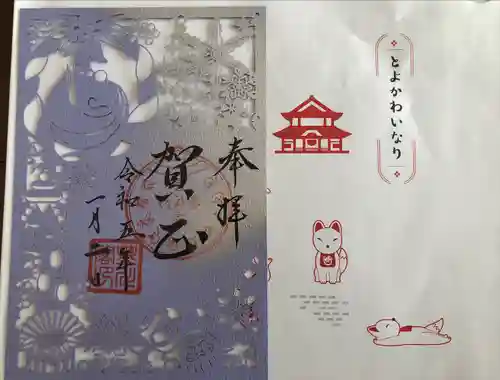 とよかわいなり
奉拝
賀正
令和五年
一月一日